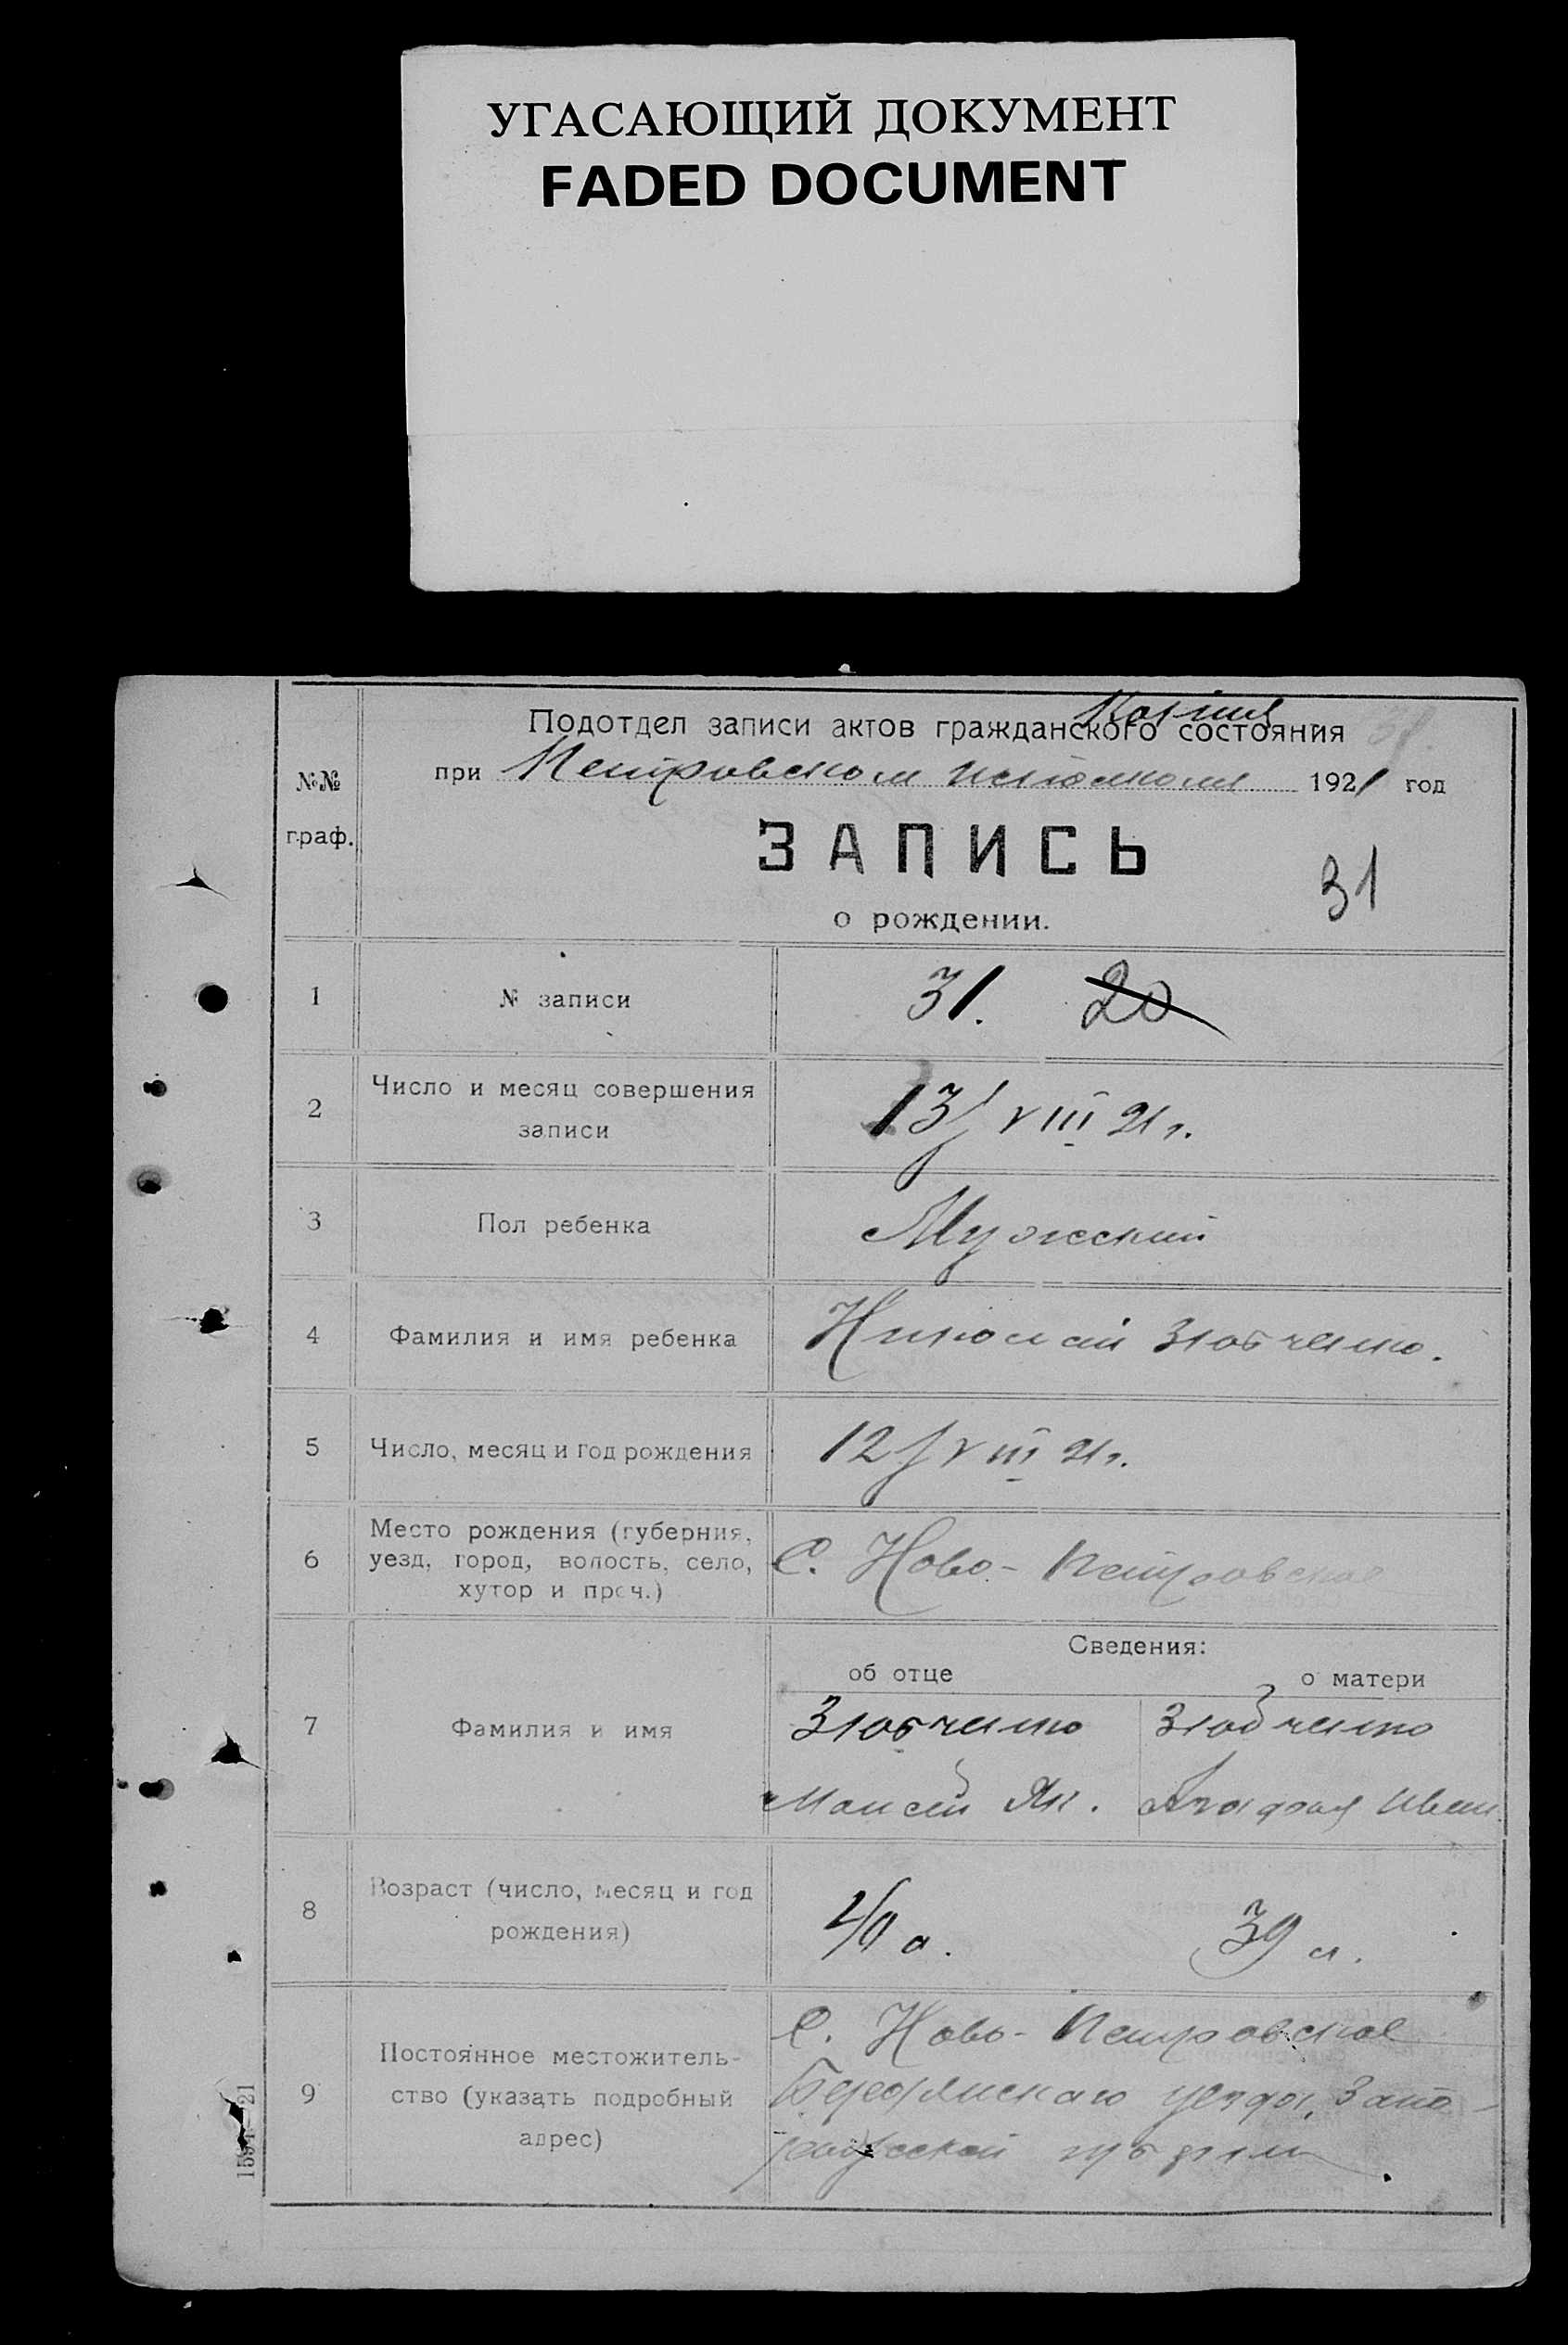 УГАСАЮЩИЙ ДОКУМЕНТ
FADED DOCUMENT
Подотдел записи актов гражданского состояния
Копия
при Петровском исполкоме 1921 год
№№
граф.
ЗАПИСЬ
31
о рождении.
1 № записи 31. 20
2 Число и месяц совершения
записи
13/VIII 21 г.
3 Пол ребенка Мужеский
4 Фамилия и имя ребенка Николай Зюбченко.
5 Число, месяц и год рождения 12/VIII 21 г.
6 Место рождения (губерния,
уезд, город, волость, село,
хутор и проч.)
С. Ново-Петровское
Сведения:
об отце о матери
7 Фамилия и имя
Зюбченко Зюбченко
Моисей Як. Агафия Иван.
8 Возраст (число, месяц и год
рождения)
40 л. 39 л.
9 Постоянное местожитель-
ство (указать подробный
адрес)
С. Ново-Петровское
Бердянскаго уезда, Запо-
рожской губернии.